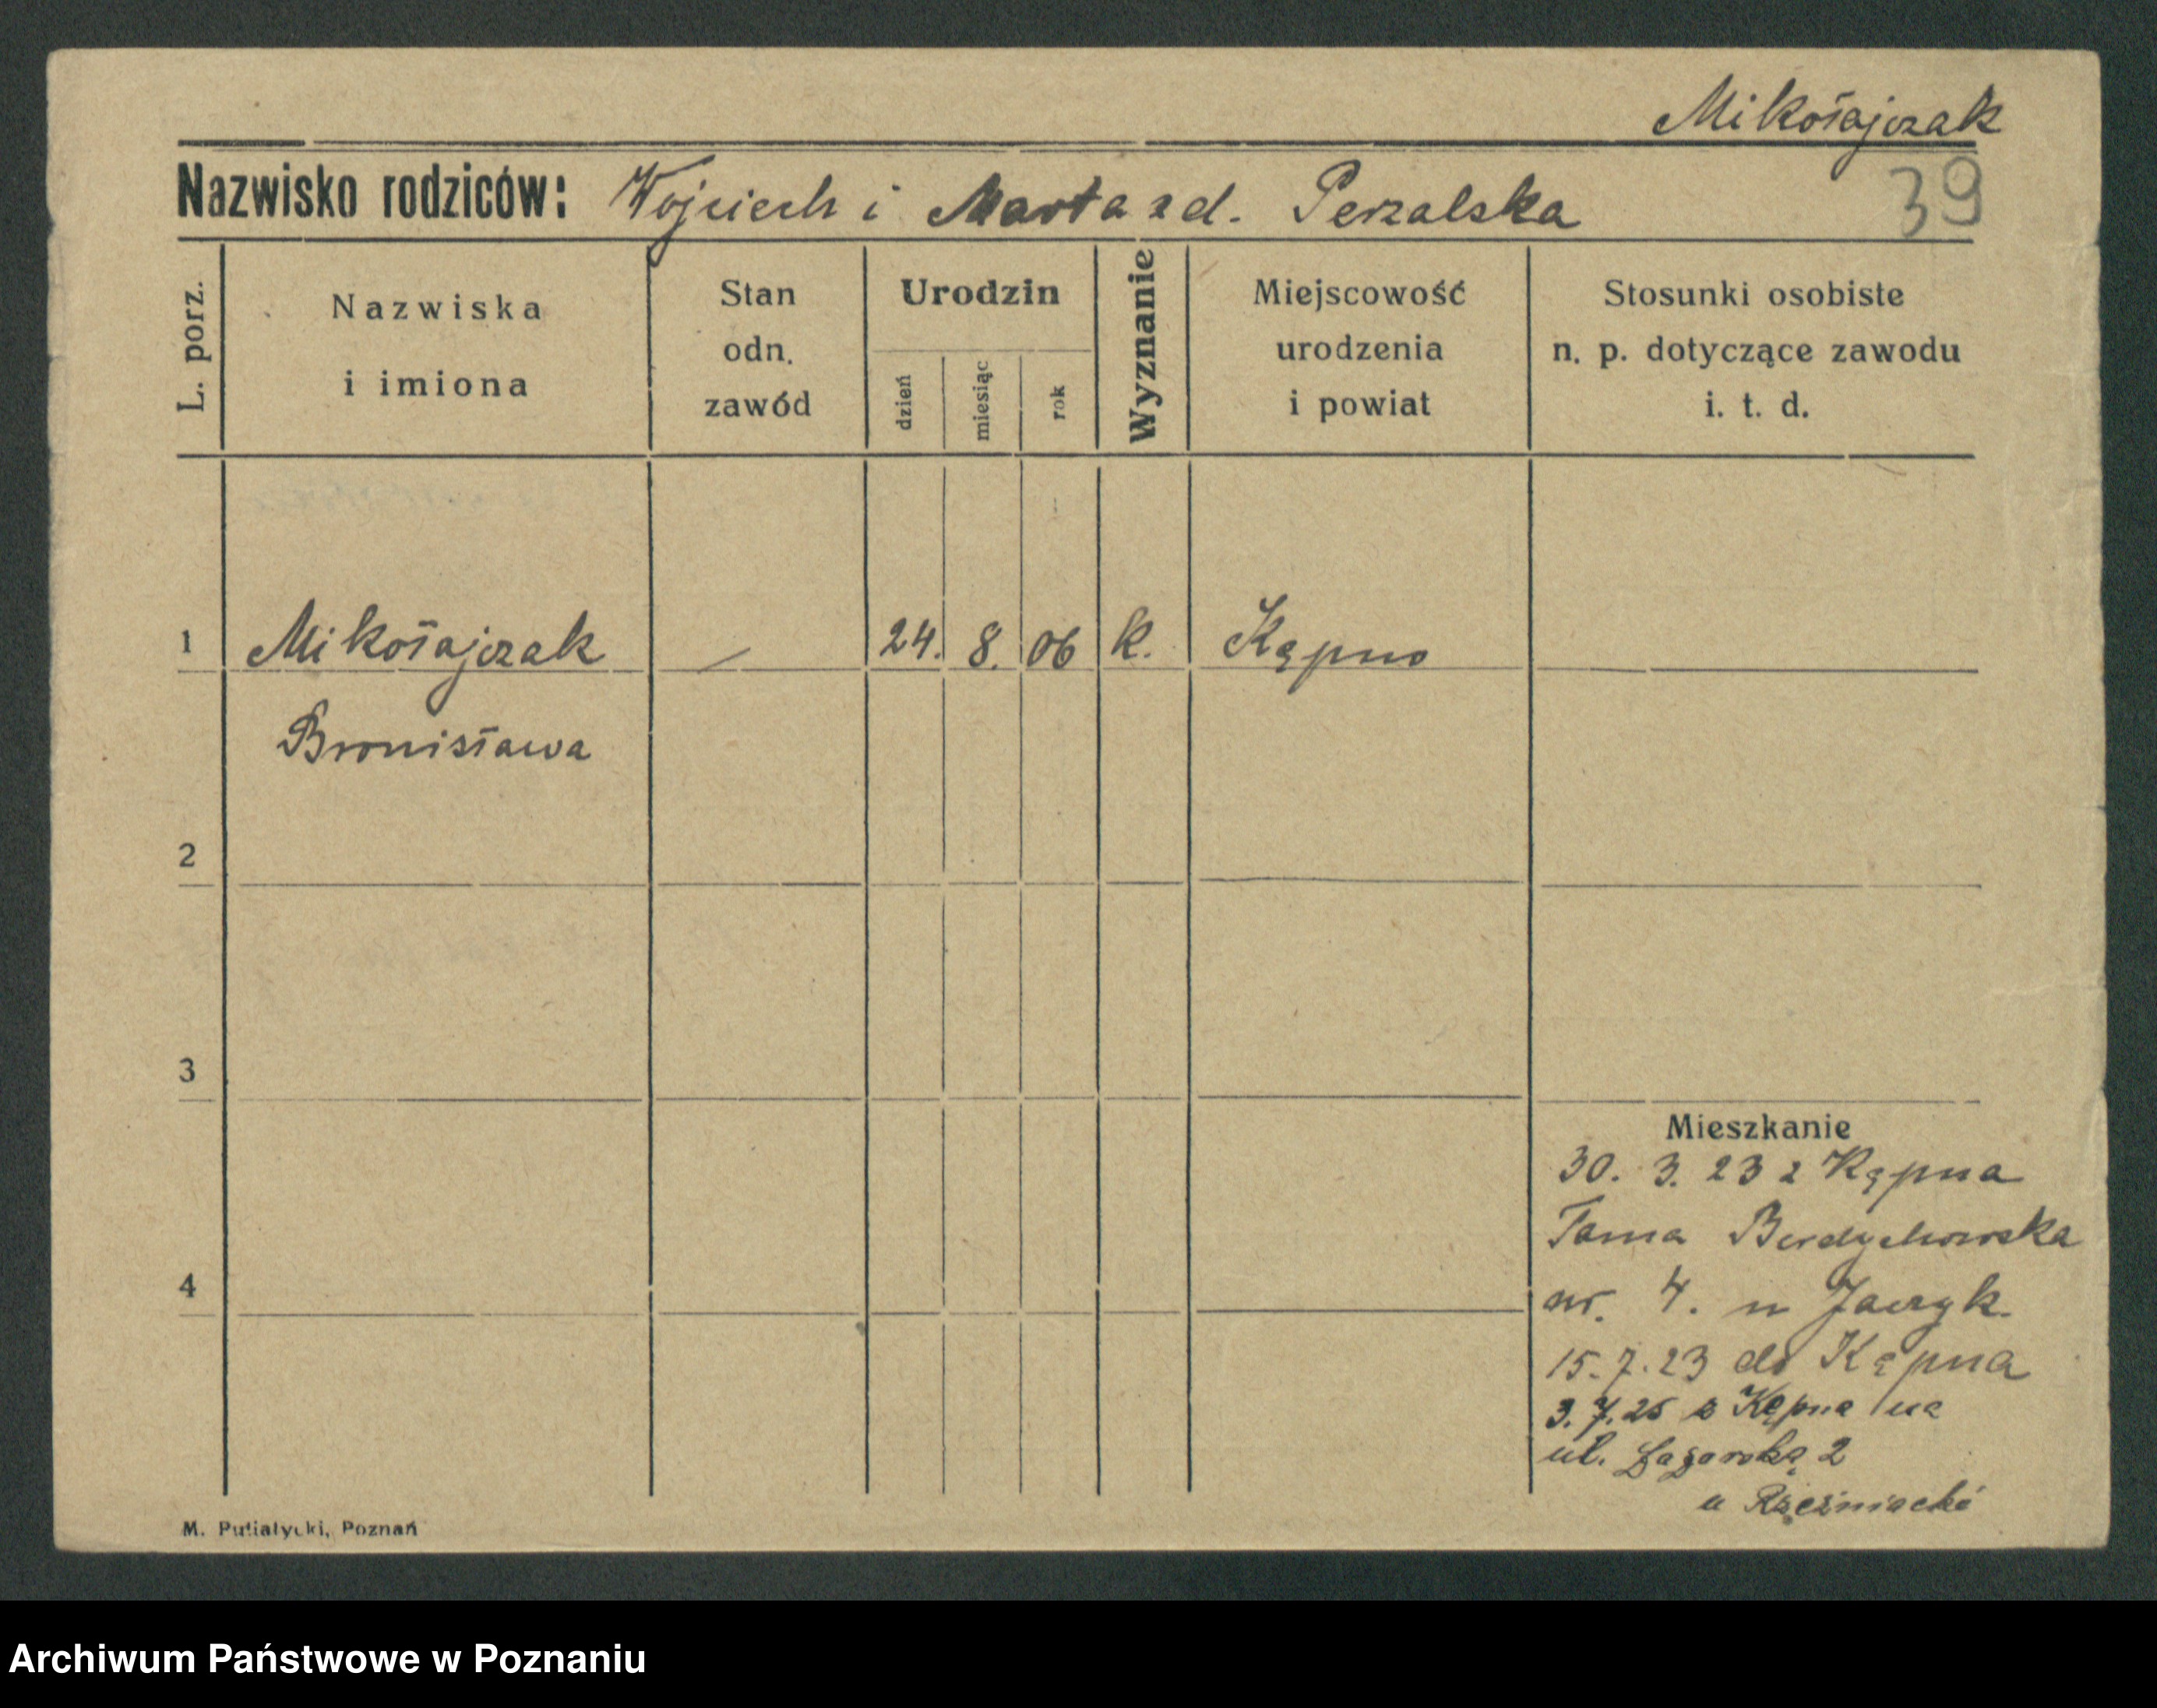 Mikołajczak
39
Nazwisko rodziców: Wojciech i Marta zd. Perzalska
L. porz.
Nazwiska i imiona
Stan odn. zawód
Urodzin
dzień
miesiąc
rok
Wyznanie
Miejscowość urodzenia i powiat
Stosunki osobiste n. p. dotyczące zawodu i. t. d.
1 Mikołajczak — 24. 8. 06 k. Kępno
Bronisława
2
3
4
Mieszkanie
30. 3. 23 z Kępna
Tama Berdychowska
nr. 4. u
15. 7. 23 do Kępna
3. 7. 25 z Kępna na
ul. 2
u
M. Putiatycki, Poznań
Archiwum Państwowe w Poznaniu